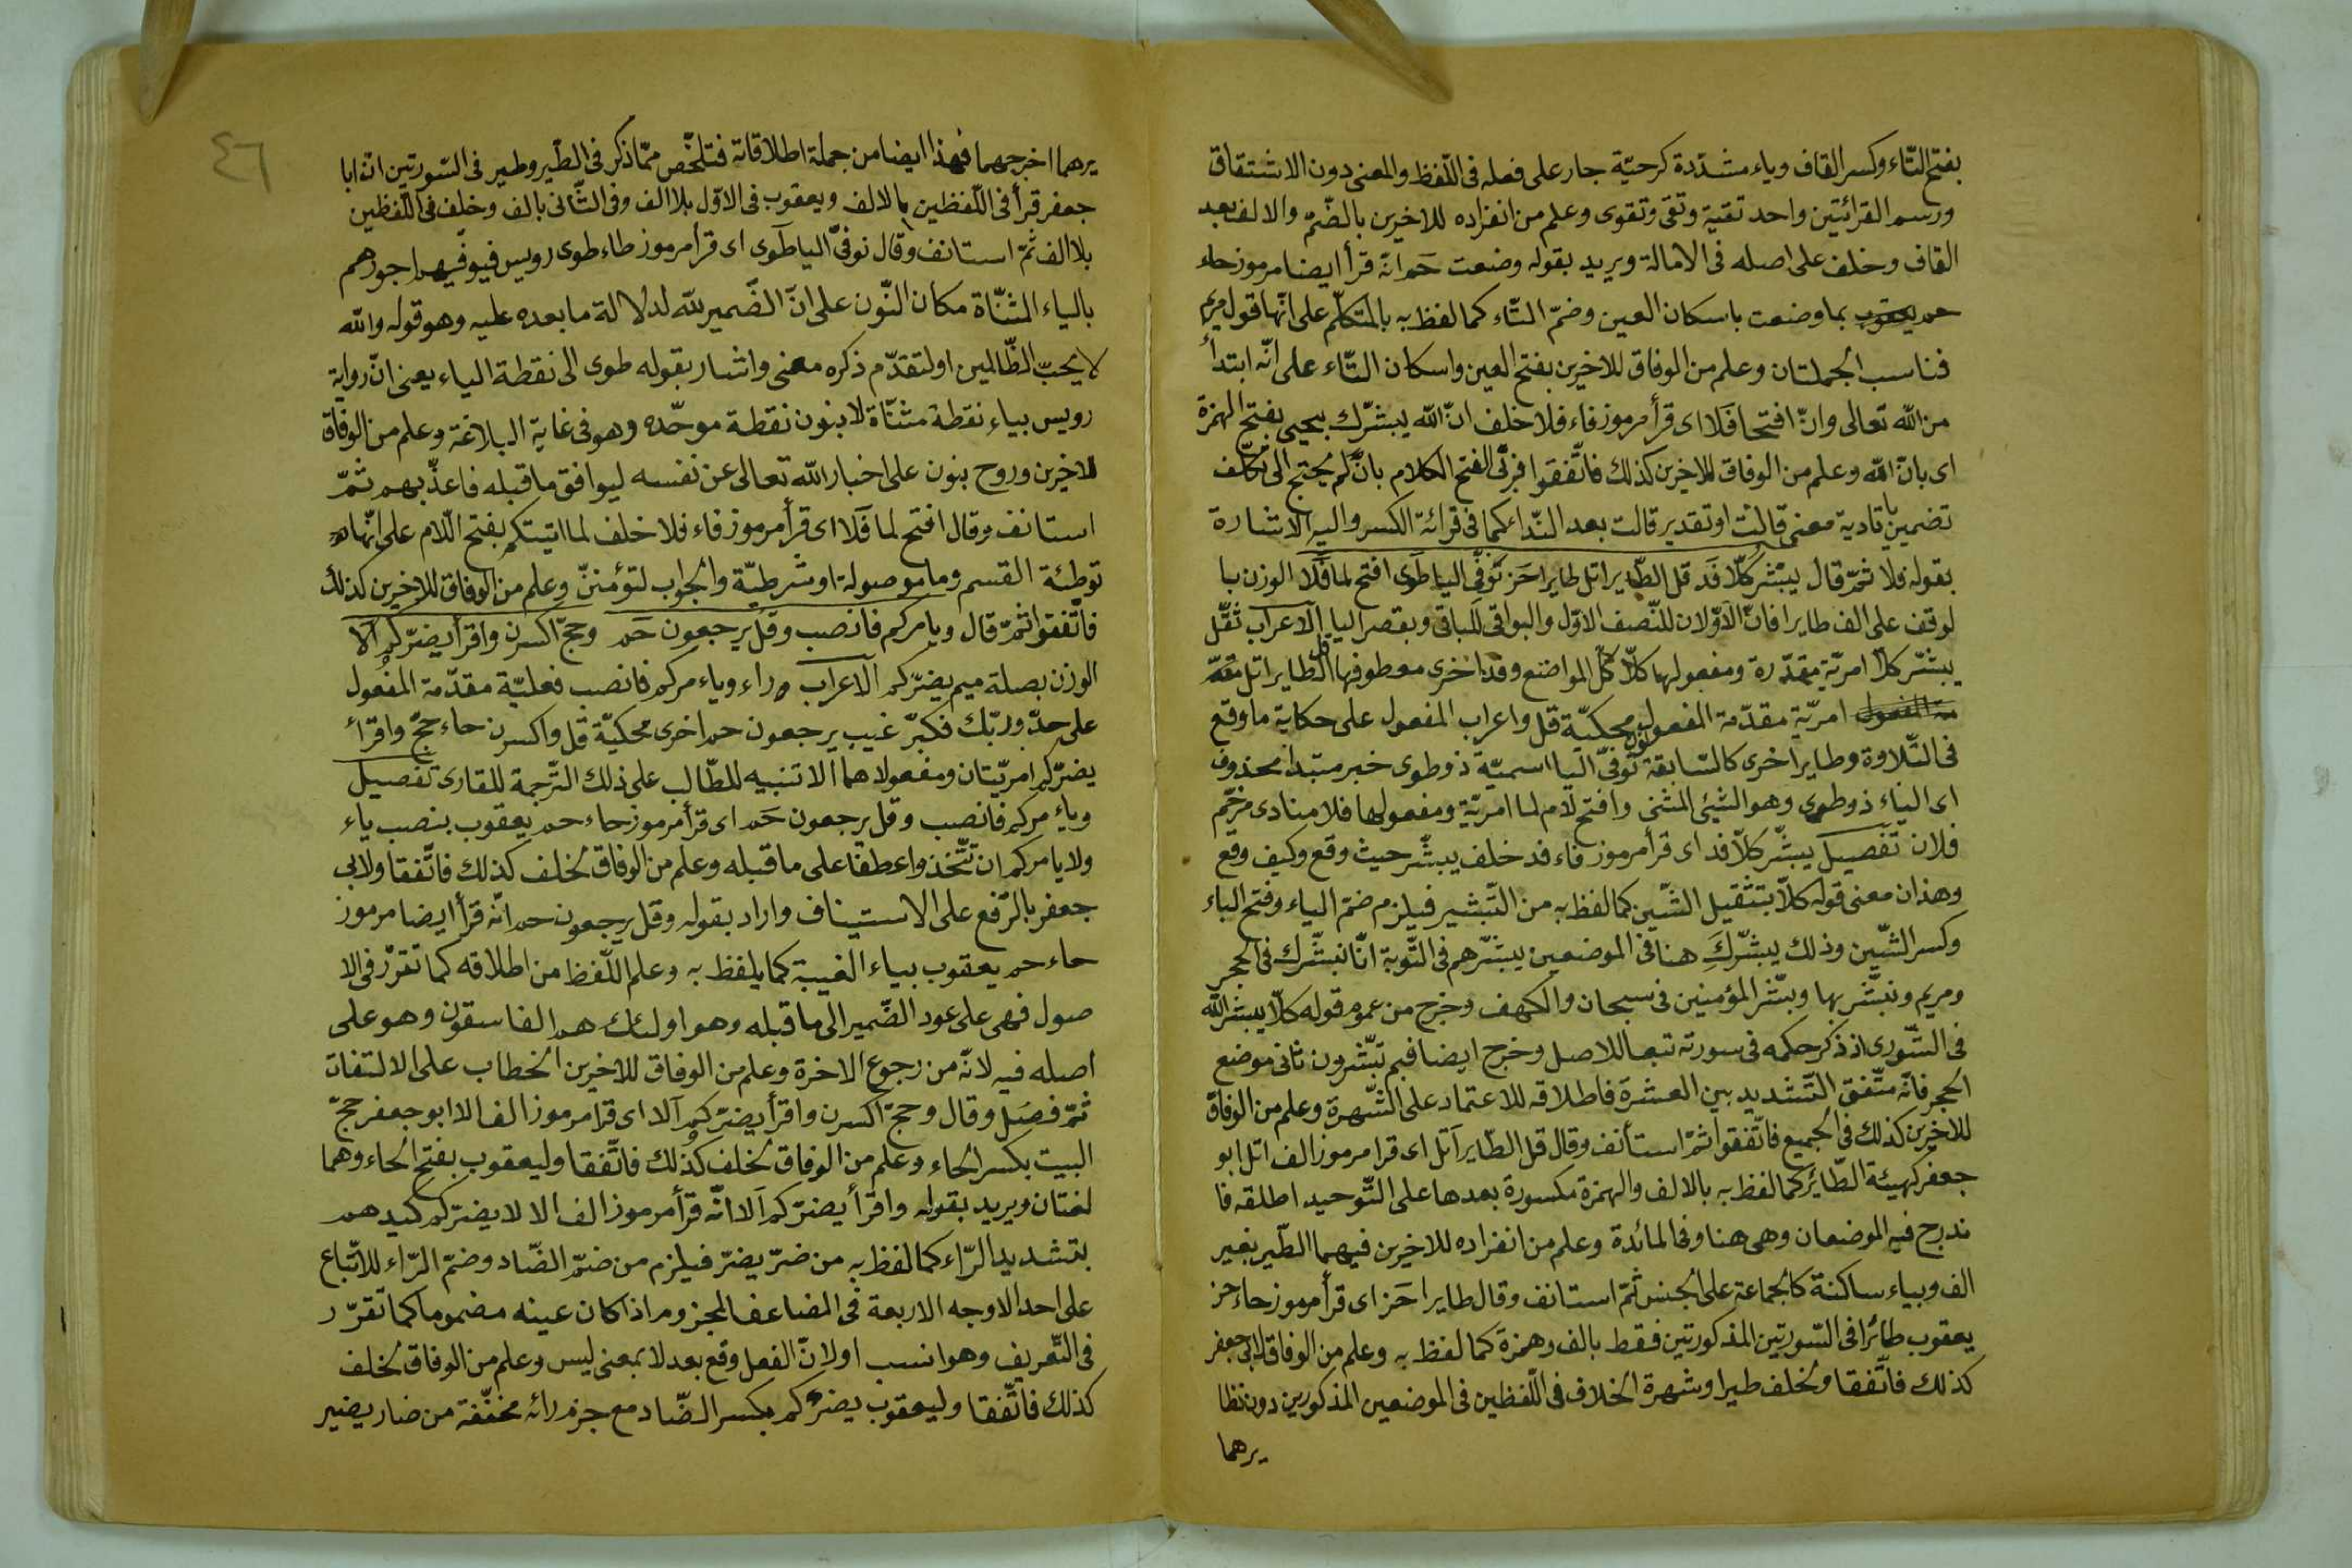 بفتح التّاء وكسر القاف وياء مشدّدة كرحيّة جار على فعله فى اللّفظ والمعنى دون الاشتقاق
ورسم القرائتين واحد تقية وتقى وتقوى وعلم من انفراده للاخيرين بالضّمّ والالف بعد
القاف وخلف على اصله فى الامالة ويريد بقوله وضعت حَم انّه قرأ ايضا مرموز حاء
حم يعقوب بما وضعت باسكان العين وضمّ التّاء كما لفظ به بالمتكلّم على انّها قول مريم
فناسب الجملتان وعلم من الوفاق للاخيرين بفتح العين واسكان التّاء على انّه ابتدأ
من الله تعالى وانّ افتحا فَلا اى قرأ مرموز فاء فلا خلف انّ الله يبشّرك بيحيى بفتح الهمزة
اى بانّ الله وعلم من الوفاق للاخيرين كذلك فاتّفقوا الفتح الكلام بانّ لم يحتج الى تكلّف
تضمين يا تادية معنى قالت او تقدير قالت بعد النّداء كما فى قرائة الكسر واليه الاشارة
بقوله فلا ثمّ قال يبشّر كلّا فَد قل الطّاير اتل طايرا حَز نوَفّى اليا طَوى افتح لما فَلا الوزن با
لوقف على الف طايرا فانّ الاوّلان للنّصف الاوّل والبواقى للباقى وبقصر اليا الاعراب ثقّل
يبشّر كلّا امريّة مقدّرة ومفعولها كلّا كلّ المواضع وفد اخرى معطوفها قل الطّاير اتل
امريّة مقدّمة المفعول محكيّة قل واعراب المفعول على حكاية ما وقع
فى التّلاوة وطايرا اخرى كالسّابقة نوفّى اليا اسميّة ذو طوى خبر مبتدا محذوف
اى الياء ذو طوى وهو الشّئى المثنى وافتح لام لما امريّة ومفعولها فلا منادى مرخّم
فلان تفصيل يبشّر كلّا فد اى قرأ مرموز فاء فد خلف يبشّر حيث وقع وكيف وقع
وهذان معنى قوله كلّا بتثقيل الشّين كما لفظ به من التّبشير فيلزم ضمّ الياء وفتح الباء
وكسر الشّين وذلك يبشّركَِ هنا فى الموضعين يبشّرهم فى التّوبة انّا نبشّرك فى الحجر
ومريم ونبشّر بها ويبشّر المؤمنين فى سبحان والكهف وخرج من عموم قوله كلّا يبشّر الله
فى الشّورى اذ ذكر حكمه فى سورته تبعا للاصل وخرج ايضا فبم تبشّرون ثانى موضع
الحجر فانّه متّفق التّشديد بين العشرة فاطلاقه للاعتماد على الشّهرة وعلم من الوفاق
للاخيرين كذلك فى الجميع فاتّفقوا ثمّ استأنف وقال قل الطّاير اتل اى قرا مرموز الف اتل ابو
جعفر كهيئة الطّائر كما لفظ به بالالف والهمزة مكسورة بعدها على التّوحيد اطلقه فا
ندرج فيه الموضعان وهى هنا وفى المائدة وعلم من انفراده للاخيرين فيهما الطّير بغير
الف وبياء ساكنة كالجماعة على الجنس ثمّ استانف وقال طايرا حَز اى قرأ مرموز حاء حز
يعقوب طائرا فى السّورتين المذكورتين فقط بالف وهمزة كما لفظ به وعلم من الوفاق لابى جعفر
كذلك فاتّفقا ولخلف طيرا وشهرة الخلاف فى اللّفظين فى الموضعين المذكورين دون نظا
يرهما
٤٦
يرهما اخرجهما فهذا ايضا من جملة اطلاقاته فتلخّص ممّا ذكر فى الطّير وطير فى السّورتين انّ ابا
جعفر قرأ فى اللّفظين بالالف ويعقوب فى الاوّل بلا الف وفى الثّانى بالف وخلف فى اللّفظين
بلا الف ثمّ استانف وقال نوفّى اليا طَوى اى قرأ مرموز طاء طوى رويس فيوفّيهم اجورهم
بالياء المثنّاة مكان النّون على انّ الضّمير لله لدلالة ما بعده عليه وهو قوله والله
لا يحبّ الظّالمين او لتقدّم ذكره معنى واشار بقوله طوى الى نقطة الياء يعنى انّ رواية
رويس بياء نقطة مثنّاة لا بنون نقطة موحّده وهو فى غاية البلاغة وعلم من الوفاق
للاخيرين وروح بنون على اخبار الله تعالى عن نفسه ليوافق ما قبله فاعذّبهم ثمّ
استانف وقال افتح لما فَلا اى قرأ مرموز فاء فلا خلف لما اتيتكم بفتح اللّام على انّها
توطئة القسم وما موصولة او شرطيّة والجواب لتؤمننّ وعلم من الوفاق للاخيرين كذلك
فاتّفقوا ثمّ قال ويا مركم فانصب وقل يرجعون حَم وحجّ اكسرن واقرأ يضرّكم الا
الوزن بصلة ميم يضرّكم الاعراب وراء وياء مركم فانصب فعليّة مقدّمة المفعول
على حدّ وربّك فكبّر غيب يرجعون حم اخرى محكيّة قل واكسرن حاء حجّ واقرأ
يضرّكم امريّتان ومفعولاهما الا تنبيه للطّالب على ذلك التّرجمة للقارى تفصيل
وياء مركم فانصب وقل يرجعون حَم اى قرأ مرموز حاء حم يعقوب بنصب ياء
ولا يامركم ان تتّخذوا عطفا على ما قبله وعلم من الوفاق لخلف كذلك فاتّفقا ولابى
جعفر بالرّفع على الاستيناف واراد بقوله وقل يرجعون حم انّه قرأ ايضا مرموز
حاء حم يعقوب بياء الغيبة كما يلفظ به وعلم اللّفظ من اطلاقه كما تقرّر فى الا
صول فهى على عود الضّمير الى ما قبله وهو اولئك هم الفاسقون وهو على
اصله فيه لانّه من رجوع الاخرة وعلم من الوفاق للاخيرين الخطاب على الالتفات
ثمّ فصل وقال وحجّ اكسرن واقرأ يضرّكم آلا اى قرا مرموز الف الا ابو جعفر حجّ
البيت بكسر الحاء وعلم من الوفاق لخلف كذلك فاتّفقا وليعقوب بفتح الحاء وهما
لغتان ويريد بقوله واقرأ يضرّكم اَلا انّه قرأ مرموز الف الا لا يضرّكم كيدهم
بتشديد الرّاء كما لفظ به من ضرّ يضرّ فيلزم من ضمّ الضّاد وضمّ الرّاء للاتّباع
على احد الاوجه الاربعة فى المضاعف المجزوم اذا كان عينه مضموما كما تقرّر
فى التّعريف وهو انسب اولانّ الفعل وقع بعد لا بمعنى ليس وعلم من الوفاق لخلف
كذلك فاتّفقا وليعقوب يضركم بكسر الضّاد مع جزم رائه مخفّفة من ضار يضير